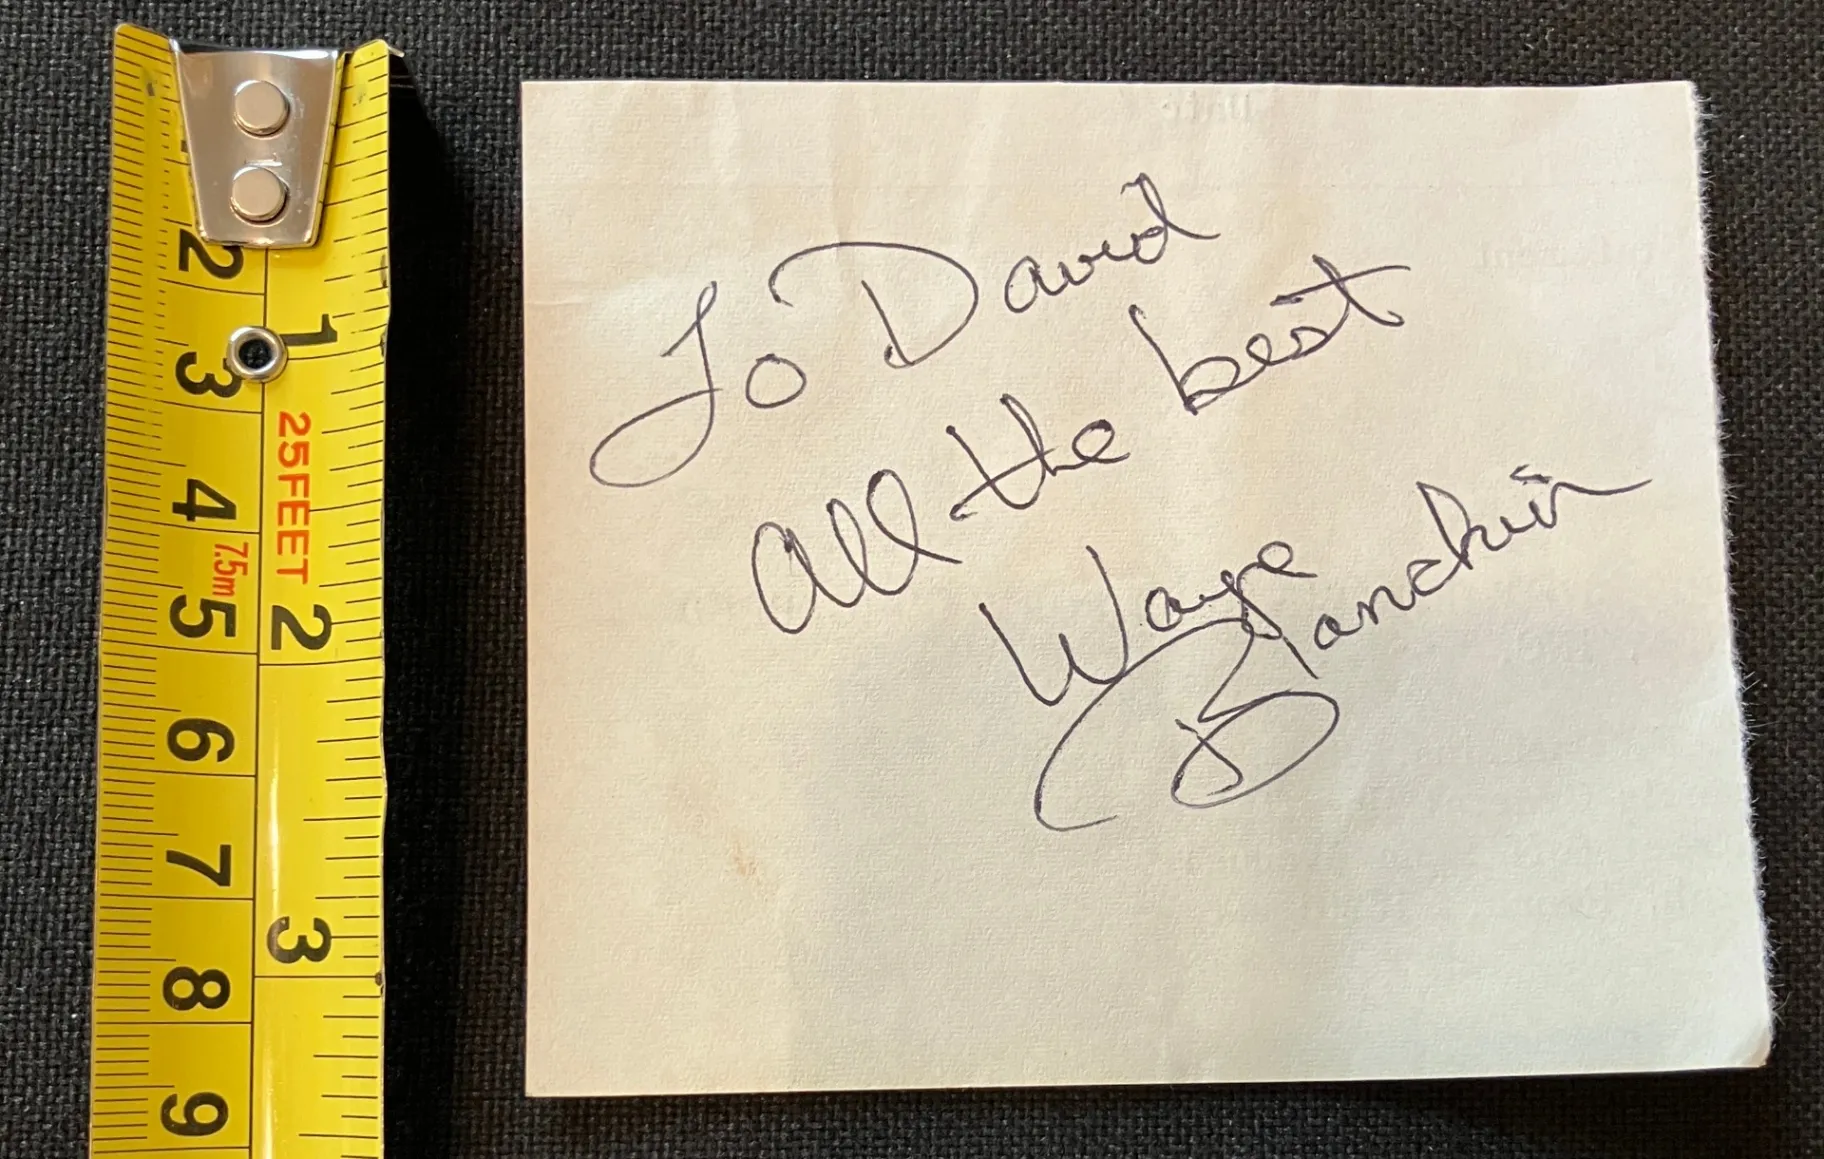 2
1
3
25FEET
4
7.5m
5
2
6
7
3
8
9
To David
All the best
Wayne